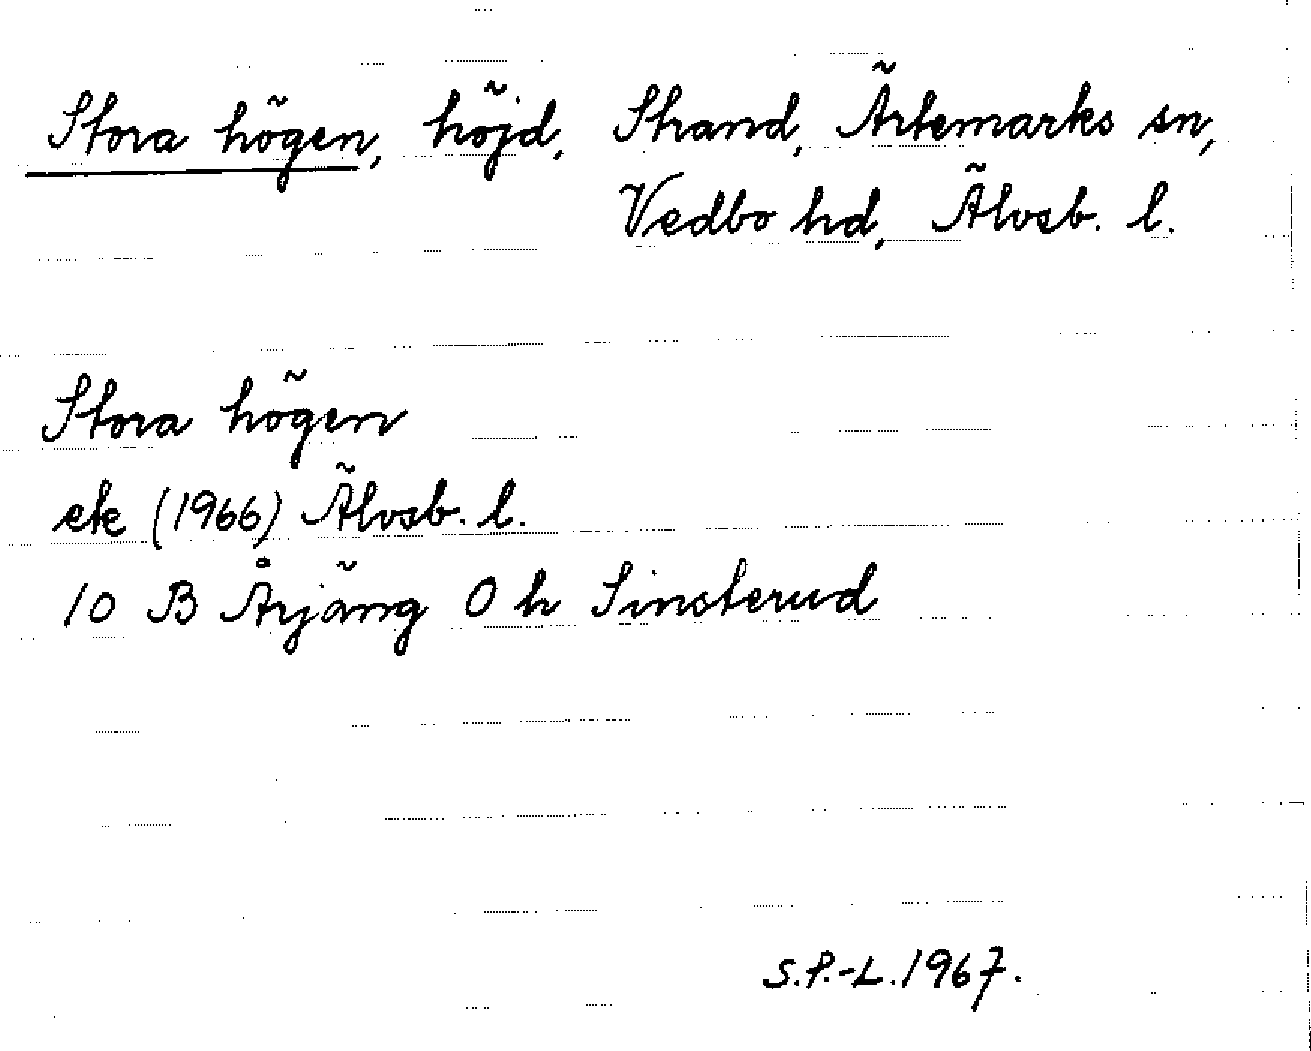 Stora högen, höjd, Strand, Ärtemarks sn,
Vedbo hd, Älvsb. l.
Stora högen
ek (1966) Älvsb. l.
10 B Årjäng 0 h Sinsterud
S.P.-L. 1967.